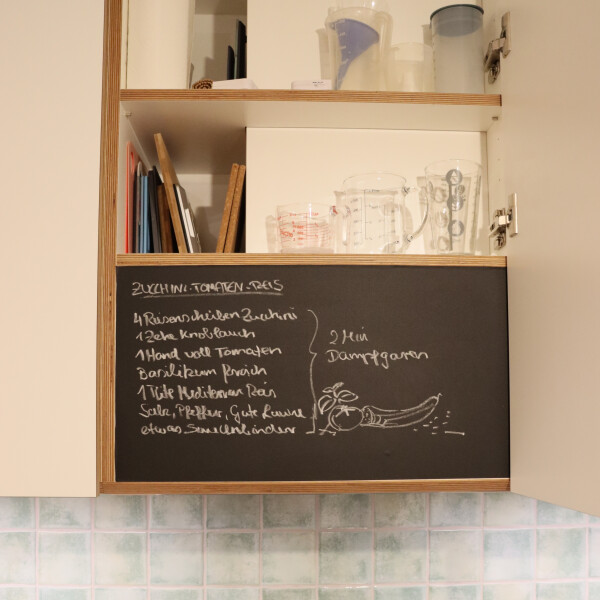 ZUCCHINI-TOMATEN-REIS
4 Riesenscheiben Zucchini
1 Zehe Knoblauch
1 Hand voll Tomaten
Basilikum frisch
1 Tüte Mediterran Reis
Salz, Pfeffer, Gute Laune
etwas
2 Min
Dampfgaren